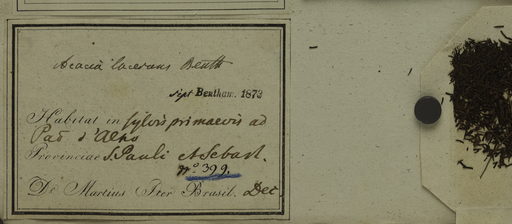 Acacia lacerans Benth
script Bentham. 1873
Habitat in sylvis primaevis ad
Pao d'Alho
Provinciae S. Pauli et Sebast.
No. 399.
De Martius Iter Brasil. Dec